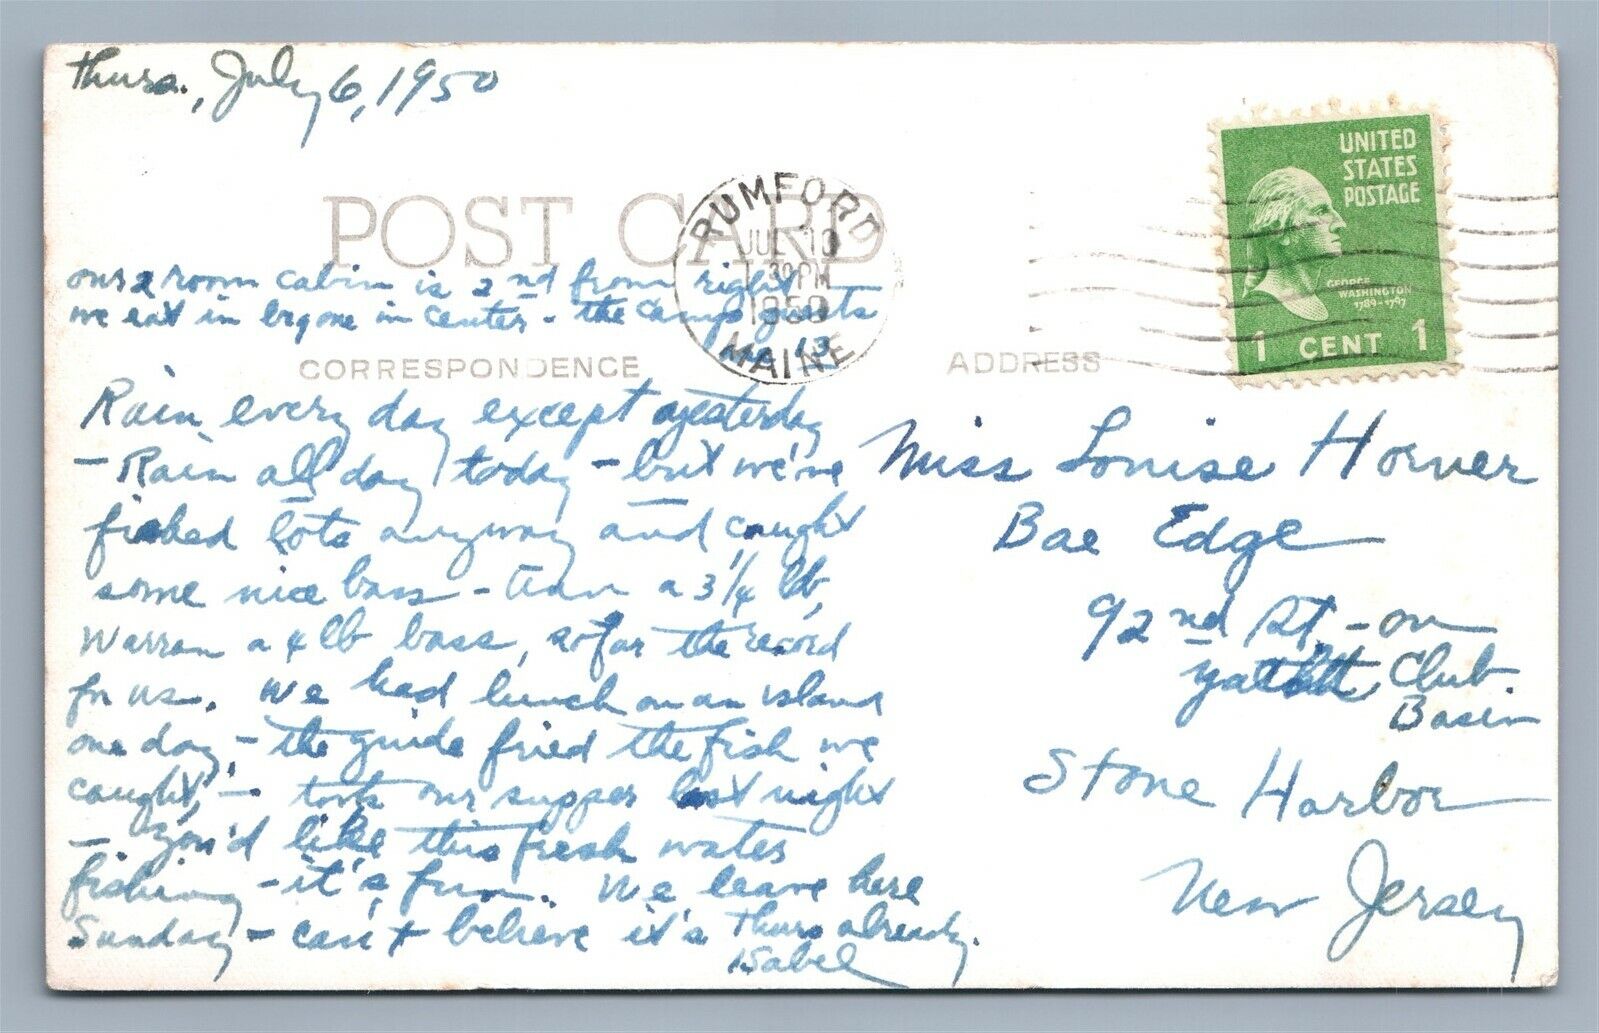 Thurs., July 6, 1950
UNITED
STATES
POSTAGE
GEORGE
WASHINGTON
1789-1797
1 CENT 1
POST CARD
RUMFORD
JUL 10
30 PM
1950
MAINE
our 2 room cabin is 2nd from right
we eat in big one in center - the camps guests
are 13
CORRESPONDENCE
ADDRESS
Rain every day except yesterday
- Rain all day today - but we've
fished lots anyway and caught
some nice bass - Ann a 3 1/4 lb,
Warren a 4 lb bass, so far the record
for us. We had lunch on an island
one day, - the guide fried the fish we
caught, - took our supper last night
- you'd like this fresh water
fishing - it's fun. We leave here
Sunday - can't believe it's Thurs already.
Isabel
Miss Louise Horner
Bae Edge
92nd St. - on
Club
Basin
Stone Harbor
New Jersey